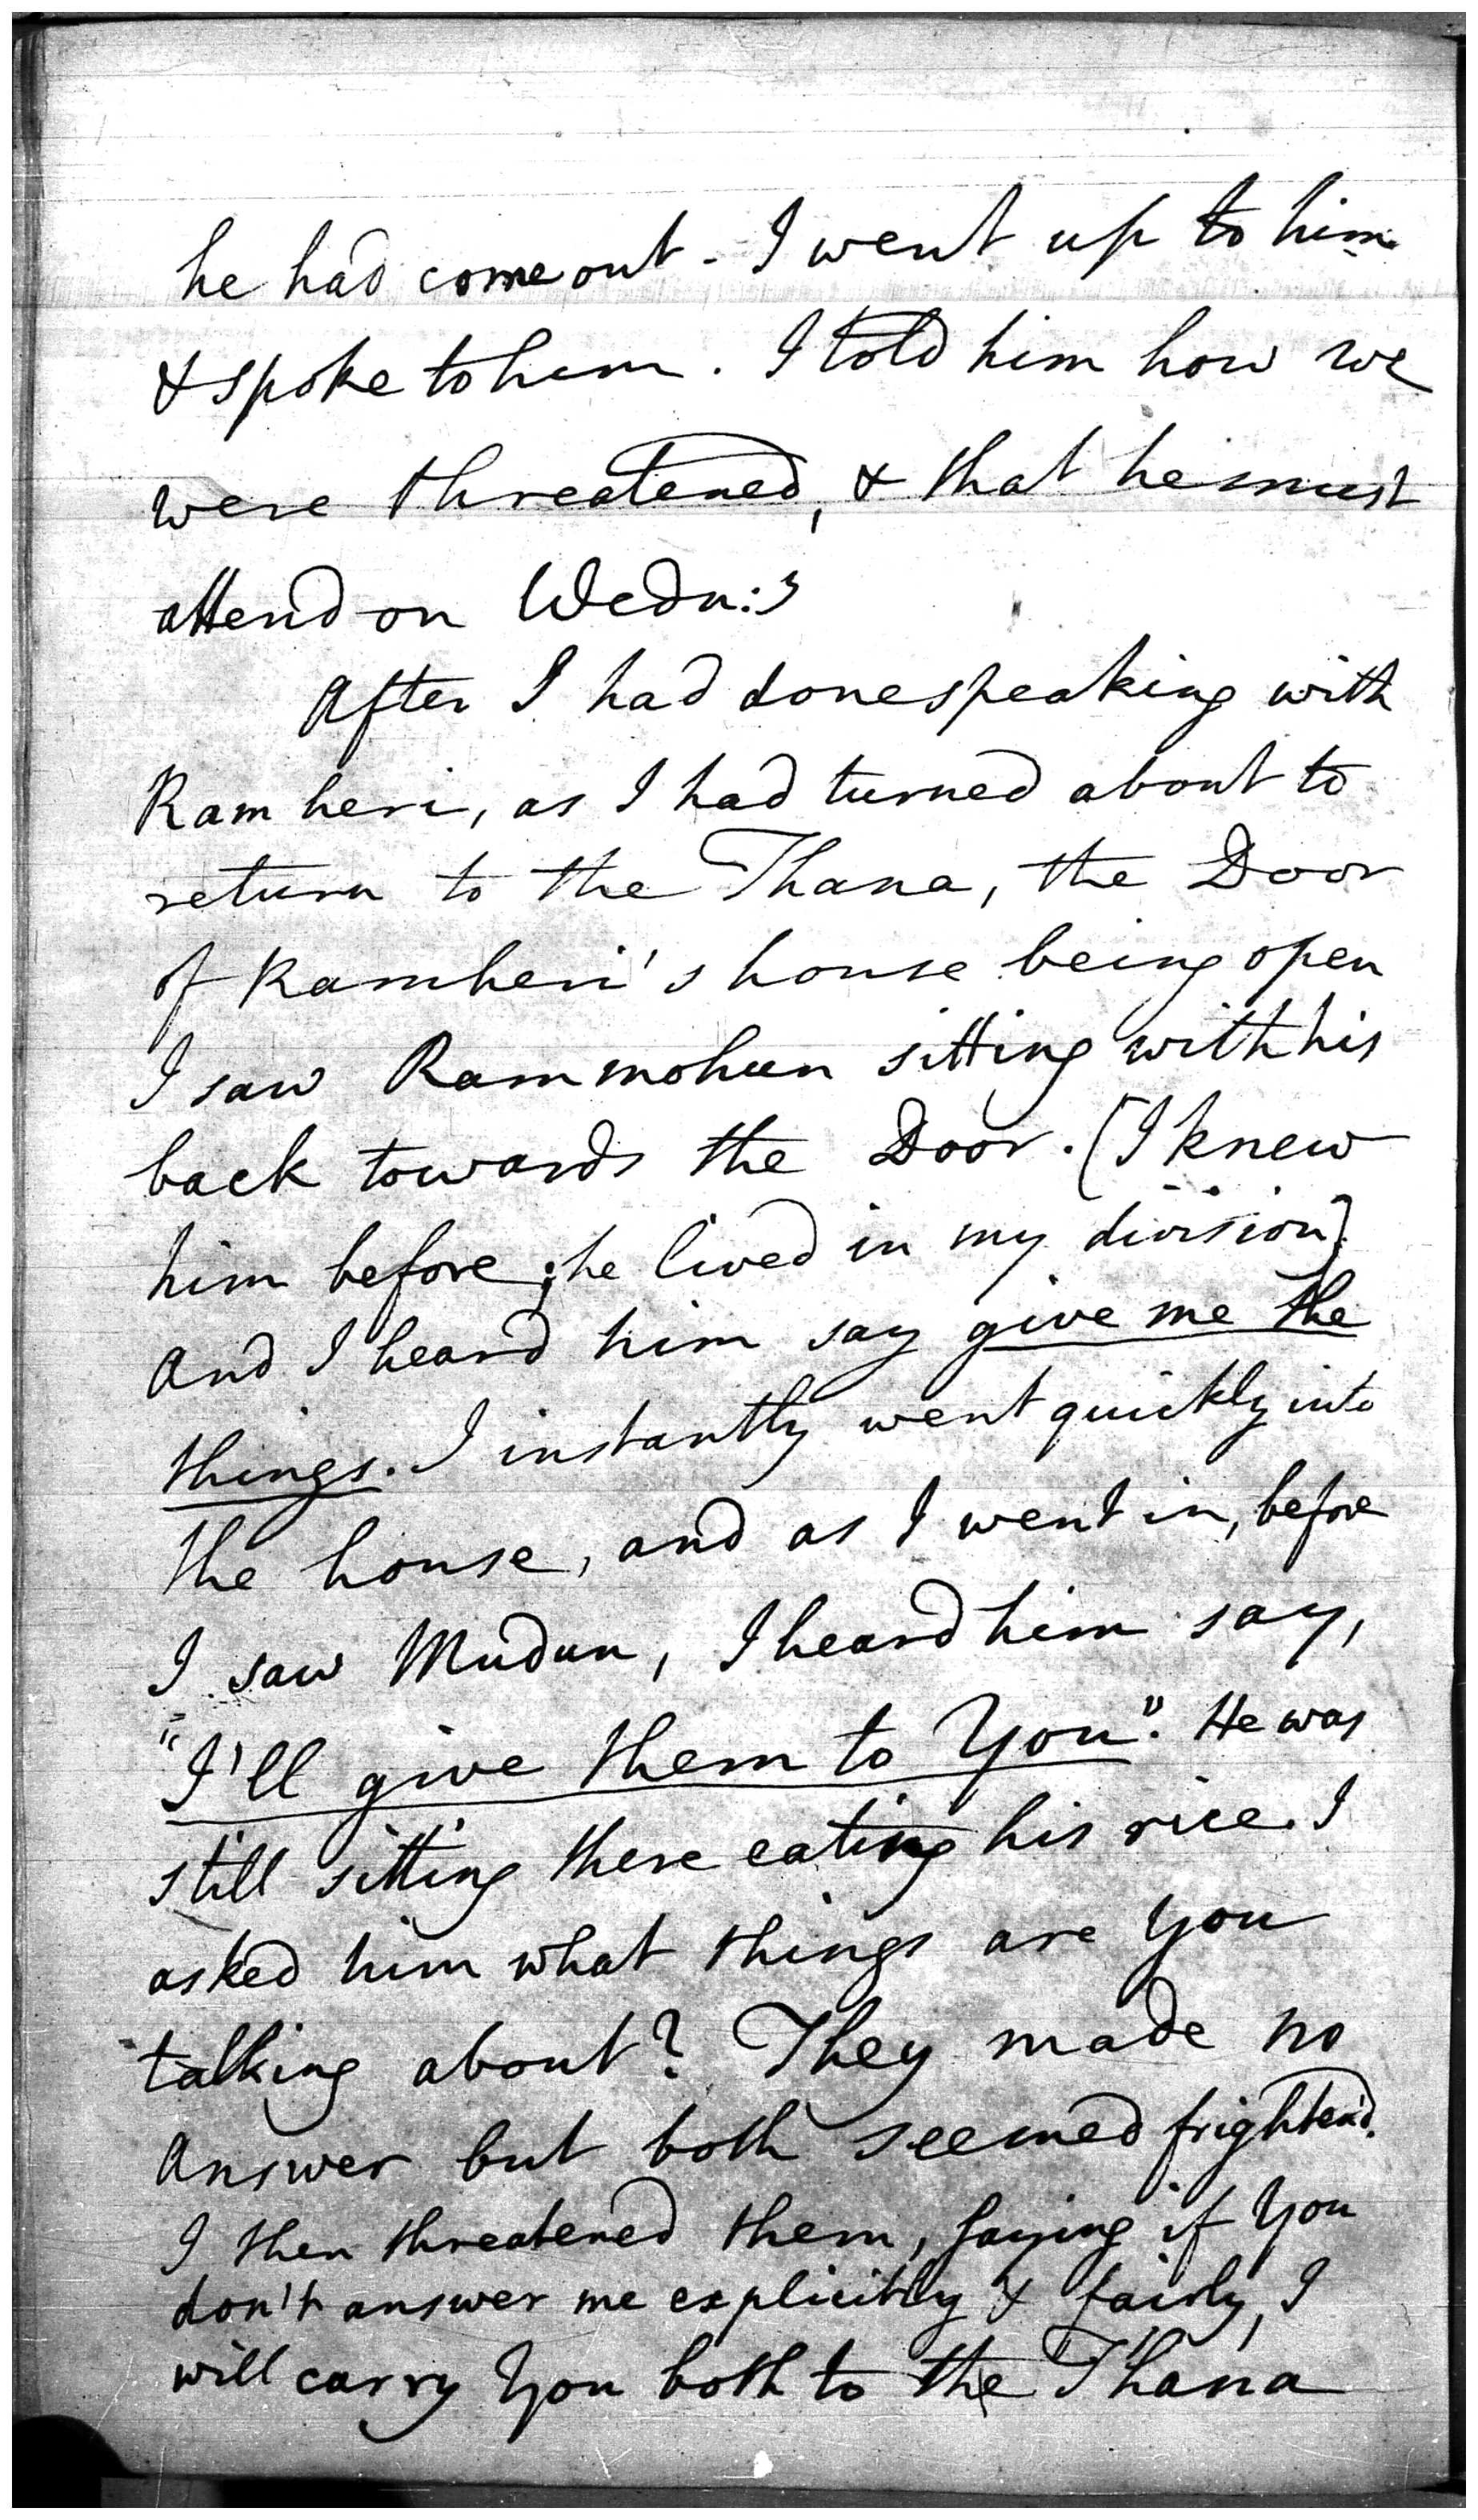 he had come out - I went up to him
& spoke to him. I told him how we
were threatened, & that he must
attend on Wedn:s
After I had done speaking with
Ramheri, as I had turned about to
return to the Thana, the Door
of Ramheri's house being open
I saw Rammohun sitting with his
back towards the Door. (I knew
him before; he lived in my division)
and I heard him say give me the
things. I instantly went quickly into
the house, and as I went in, before
I saw Mudun, I heard him say,
"I'll give them to You". He was
still sitting there eating his rice. I
asked him what things are You
talking about? They made no
answer but both seemed frighten'd.
I then threatened them, saying if You
don't answer me explicitly & fairly, I
will carry You both to the Thana